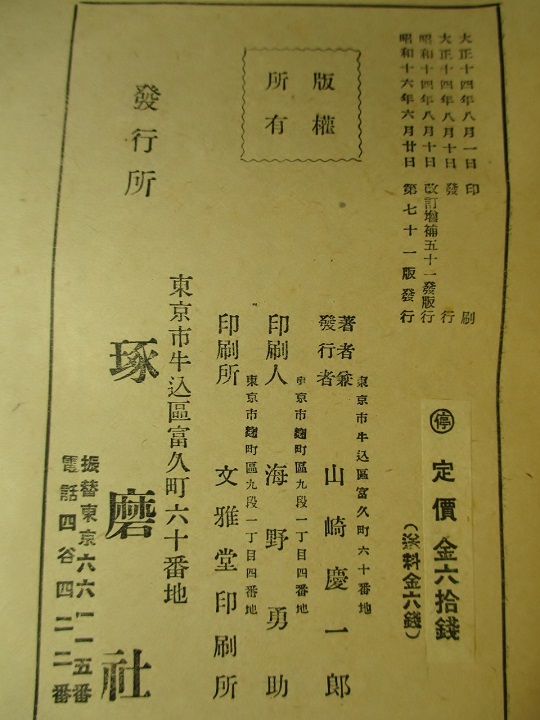 大正十四年八月一日 印刷
大正十四年八月十日 發行
昭和十四年八月十日 改訂增補五十一版發行
昭和十六年六月廿日 第七十一版發行
版權
所有
停 定價金六拾錢
(送料金六錢)
東京市牛込區富久町六十番地
著者兼發行者 山崎慶一郎
東京市麴町區九段一丁目四番地
印刷人 海野勇助
東京市麴町區九段一丁目四番地
印刷所 文雅堂印刷所
東京市牛込區富久町六十番地
發行所 琢磨社
振替東京六六一一五番
電話四谷四二二番